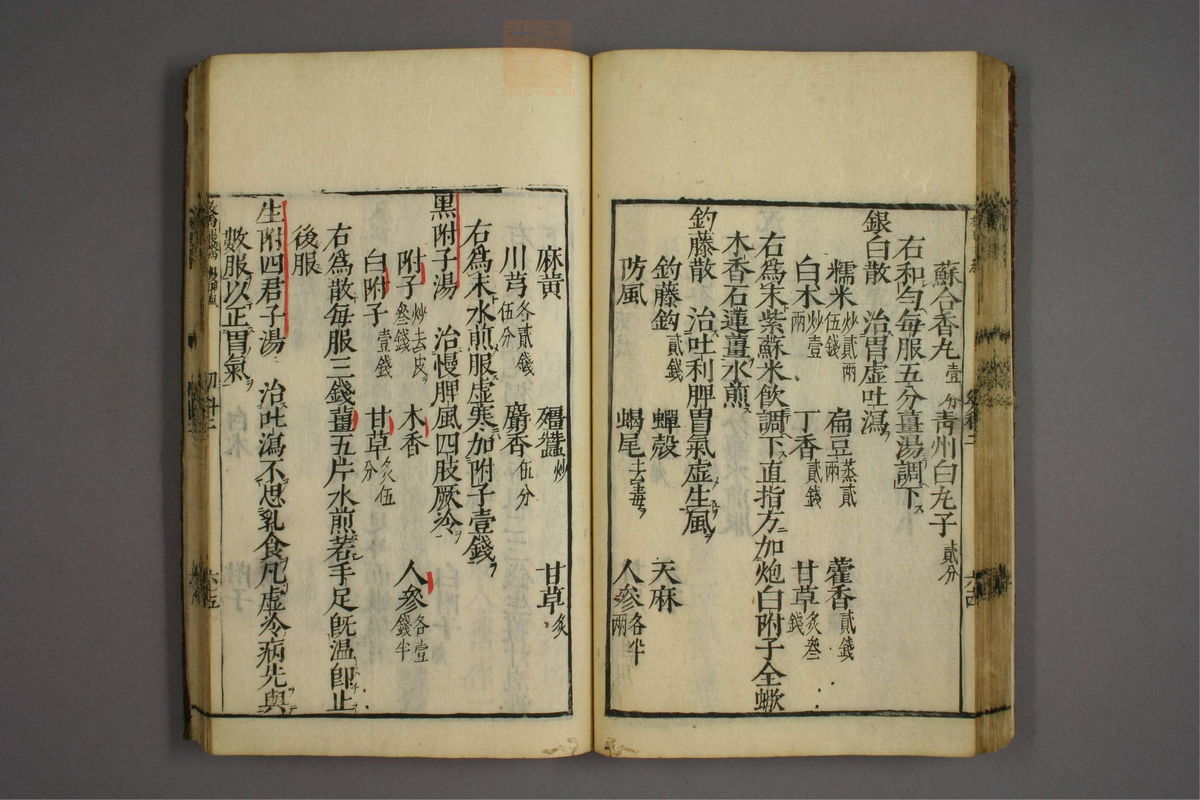 蘇合香丸壹分 青州白丸子貳分
右和勻每服五分薑湯調下
銀白散 治胃虛吐瀉
糯米炒貳兩伍錢 扁豆蒸貳兩 藿香貳錢
白朮炒壹兩 丁香貳錢 甘草炙叄錢
右爲末紫蘇米飲調下直指方加炮白附子全蠍
木香石蓮薑水煎
釣藤散 治吐利脾胃氣虛生風
釣藤鈎貳錢 蟬殼 天麻
防風 蝎尾去毒 人參各半兩
麻黃 殭蠶炒 甘草炙
川芎各貳錢伍分 麝香伍分
右爲末水煎服虛寒加附子壹錢
黑附子湯 治慢脾風四肢厥冷
附子炒去皮叄錢 木香 人參各壹錢半
白附子壹錢 甘草炙伍分
右爲散每服三錢薑五片水煎若手足旣温卽止
後服
生附四君子湯 治吐瀉不思乳食凡虛冷病先與
數服以正胃氣